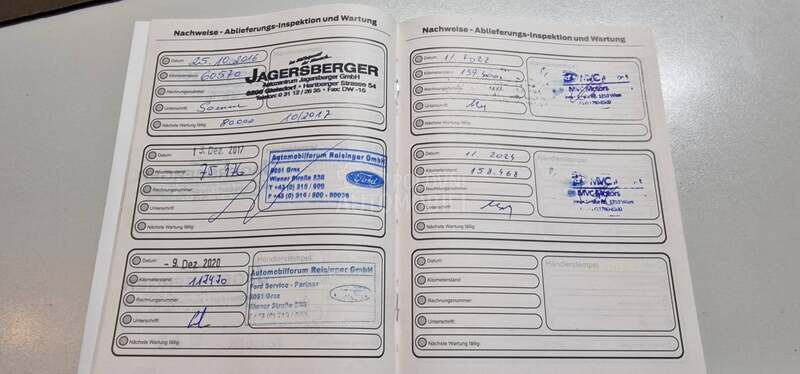 Nachweise - Ablieferungs-Inspektion und Wartung
Datum: 25.10.2016
Kilometerstand: 60570
Rechnungsnummer:
Unterschrift:
Nächste Wartung fällig: 80000 10/2017
JAGERSBERGER
Autozentrum Jagersberger GmbH
8200 Gleisdorf · Hartberger Strasse 54
Telefon: 0 31 12 / 26 35 · Fax: DW -16
Datum: 13. Dez. 2017
Kilometerstand:
Rechnungsnummer:
Unterschrift:
Nächste Wartung fällig:
Automobilforum Reisinger GmbH
8051 Graz
Wiener Straße 238
Ford
Datum: - 9. Dez. 2020
Kilometerstand: 117470
Rechnungsnummer:
Unterschrift:
Nächste Wartung fällig:
Händlerstempel
Automobilforum Reisinger GmbH
Ford Service - Partner
8051 Graz
Wiener Straße 238
Nachweise - Ablieferungs-Inspektion und Wartung
Datum: 11.2022
Kilometerstand:
Rechnungsnummer:
Unterschrift:
Nächste Wartung fällig:
MVC
MVC Motors
Datum: 11.2024
Kilometerstand: 158.468
Rechnungsnummer:
Unterschrift:
Nächste Wartung fällig:
Händlerstempel
MVC
MVC Motors
Datum:
Kilometerstand:
Rechnungsnummer:
Unterschrift:
Nächste Wartung fällig:
Händlerstempel